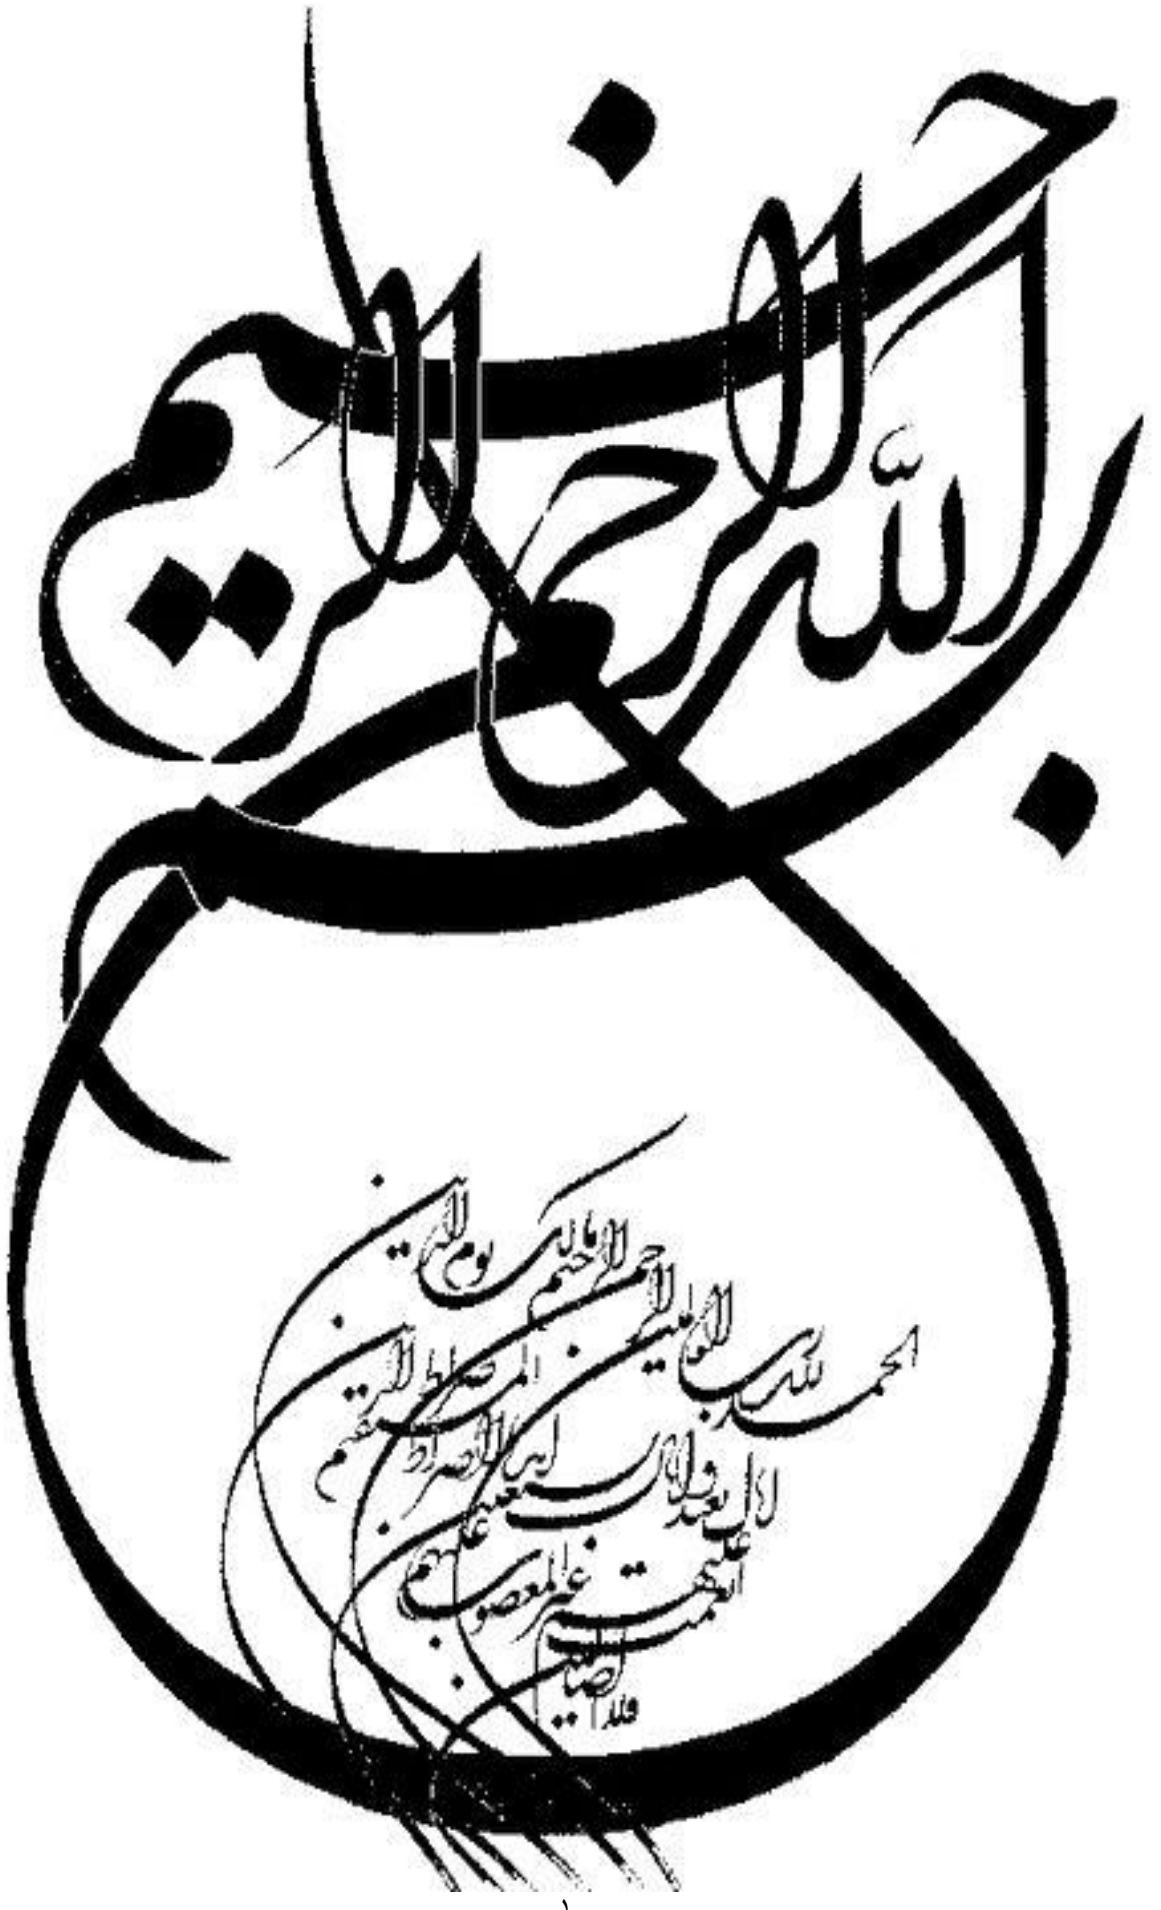 بسم الله الرحمن الرحیم
الحمد لله رب العالمین
الرحمن الرحیم
مالک یوم الدین
ایاک نعبد و ایاک نستعین
اهدنا الصراط المستقیم
صراط الذین انعمت علیهم
غیر المغضوب علیهم
ولا الضالین
۱